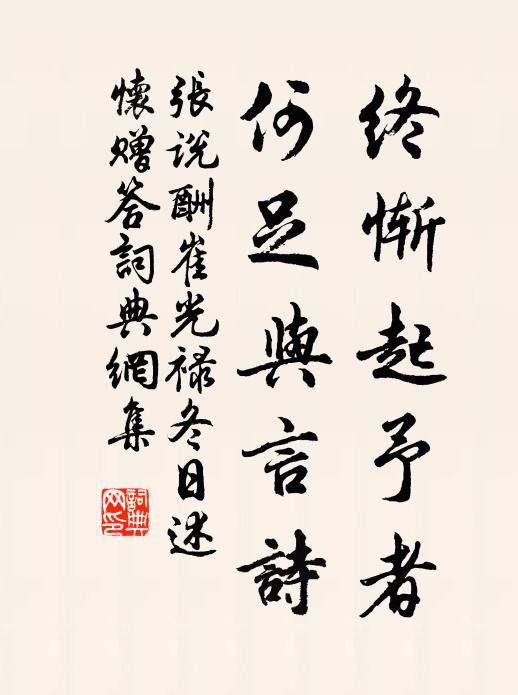 终慚起予者
何足與言詩
張説酬崔光禄冬日述
懷贈答詞典網集
詞典网印